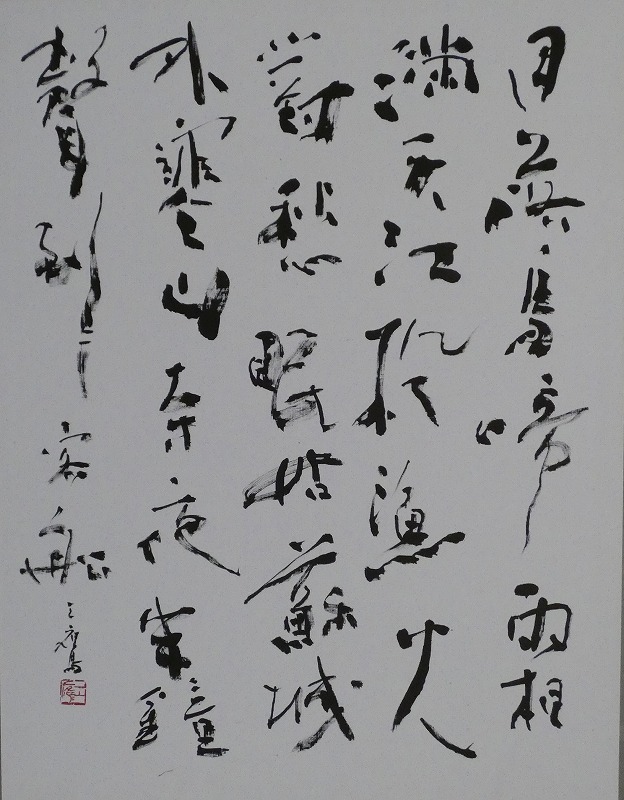 月落烏啼霜
滿天江楓漁火
對愁眠姑蘇城
外寒山寺夜半鐘
聲到客船